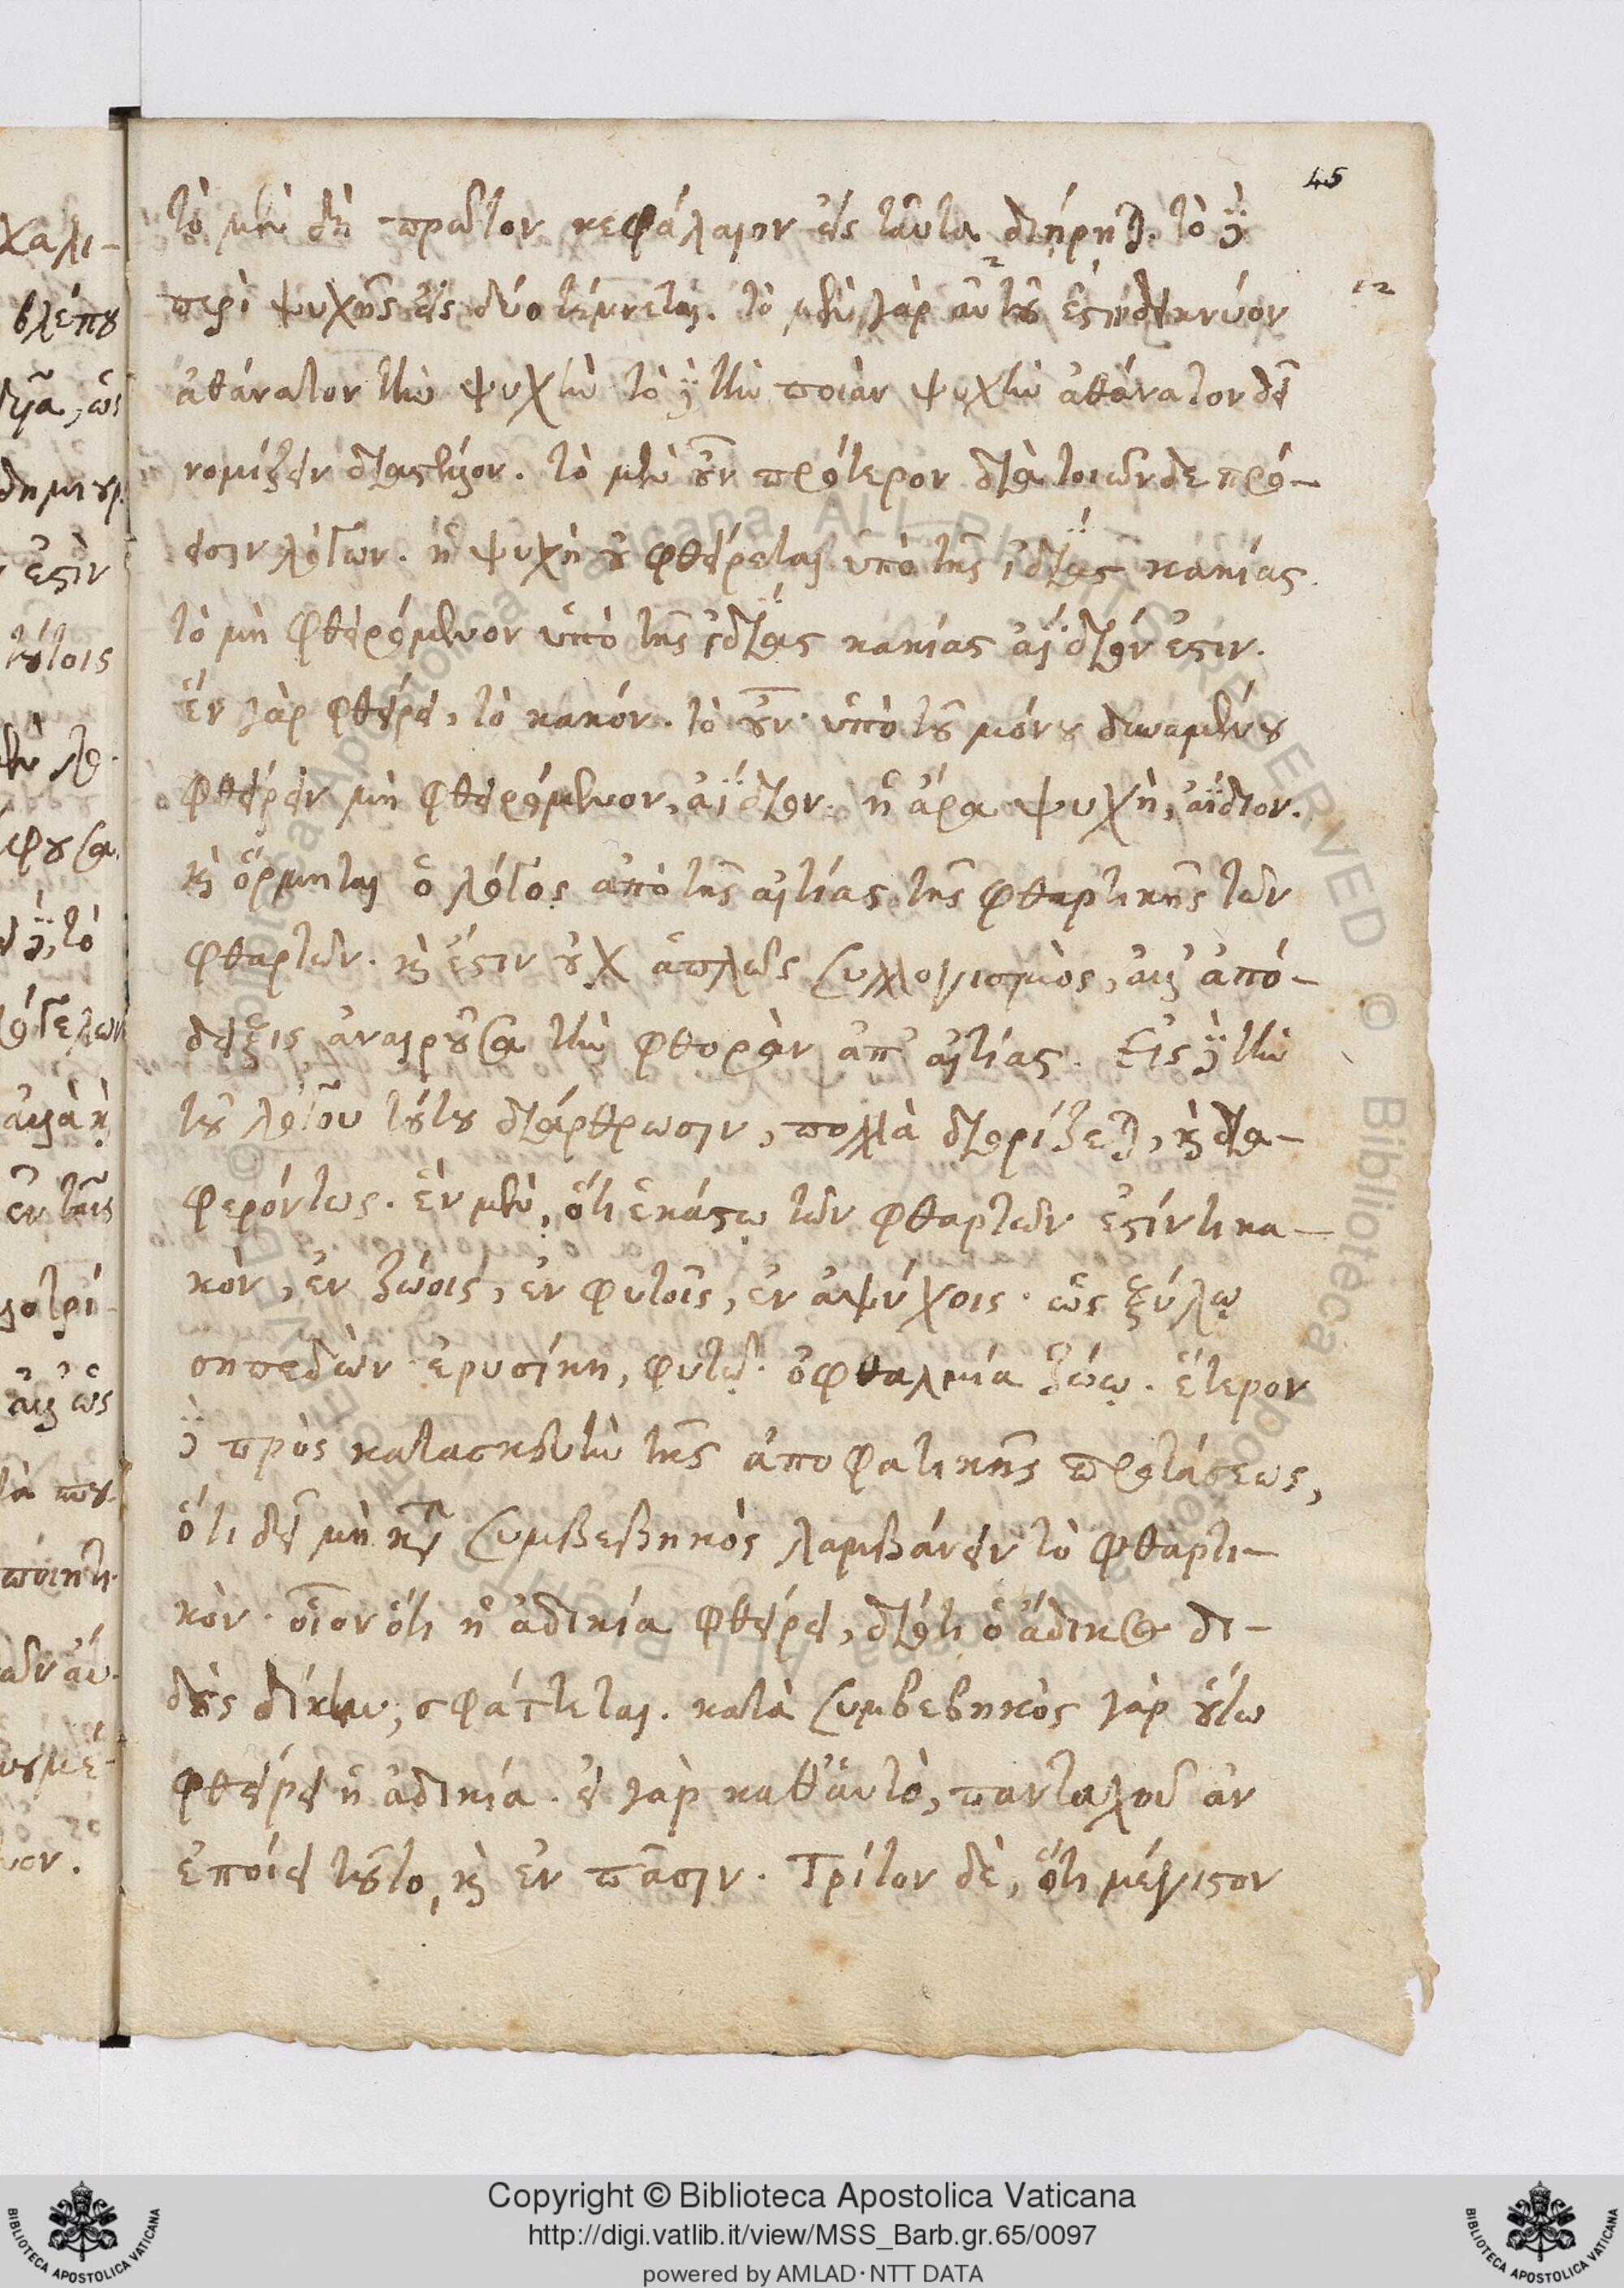 45
τὸ μὲν δὴ πρῶτον κεφάλαιον εἰς ταῦτα διῄρηται. τὸ δὲ
12
περὶ ψυχῆς εἰς δύο τέμνεται. τὸ μὲν γὰρ αὐτοῦ ἐστι δεικνύον
ἀθάνατον τὴν ψυχὴν τὸ δὲ τὴν ποίαν ψυχὴν ἀθάνατον δεῖ
νομίζειν διαστεῖλον. τὸ μὲν οὖν πρότερον διὰ τοιῶνδε πρό-
εισιν λόγων. ἡ ψυχὴ οὐ φθείρεται ὑπὸ τῆς ἰδίας κακίας.
τὸ μὴ φθειρόμενον ὑπὸ τῆς ἰδίας κακίας ἀΐδιόν ἐστιν.
ἓν γὰρ φθείρει, τὸ κακόν. τὸ οὖν ὑπὸ τοῦ μόνου δυναμένου
φθείρειν μὴ φθειρόμενον, ἀΐδιον. ἡ ἄρα ψυχὴ, ἀΐδιον.
καὶ ὅρμηται ὁ λόγος ἀπὸ τῆς αἰτίας τῆς φθαρτικῆς τῶν
φθαρτῶν. καὶ ἔστιν οὐχ ἁπλῶς συλλογισμὸς, ἀλλ' ἀπό-
δειξις ἀναιροῦσα τὴν φθορὰν ἀπ' αἰτίας. Εἰς δὲ τὴν
τοῦ λόγου τούτου διάρθρωσιν, πολλὰ διορίζεται, καὶ δια-
φερόντως. ἓν μὲν, ὅτι ἑκάστῳ τῶν φθαρτῶν ἐστίν τι κα-
κὸν, ἐν ζώοις, ἐν φυτοῖς, ἐν ἀψύχοις. ὡς ξύλῳ
σηπεδὼν ἐρυσίκη, φυτῷ. ὀφθαλμία ζώῳ. ἕτερον
δὲ πρὸς κατασκευὴν τῆς ἀποφατικῆς προτάσεως,
ὅτι δεῖ μὴ κατὰ συμβεβηκὸς λαμβάνειν τὸ φθαρτι-
κὸν. οἷον ὅτι ἡ ἀδικία φθείρει, διότι ὁ ἄδικος δι-
δοὺς δίκην, σφάττεται. κατὰ συμβεβηκὸς γὰρ οὕτω
φθείρει ἡ ἀδικία. εἰ γὰρ καθ' αὑτὸ, πανταχοῦ ἂν
ἐποίει τοῦτο, καὶ ἐν πᾶσιν. Τρίτον δὲ, ὅτι μέγιστον
Copyright © Biblioteca Apostolica Vaticana
http://digi.vatlib.it/view/MSS_Barb.gr.65/0097
powered by AMLAD·NTT DATA